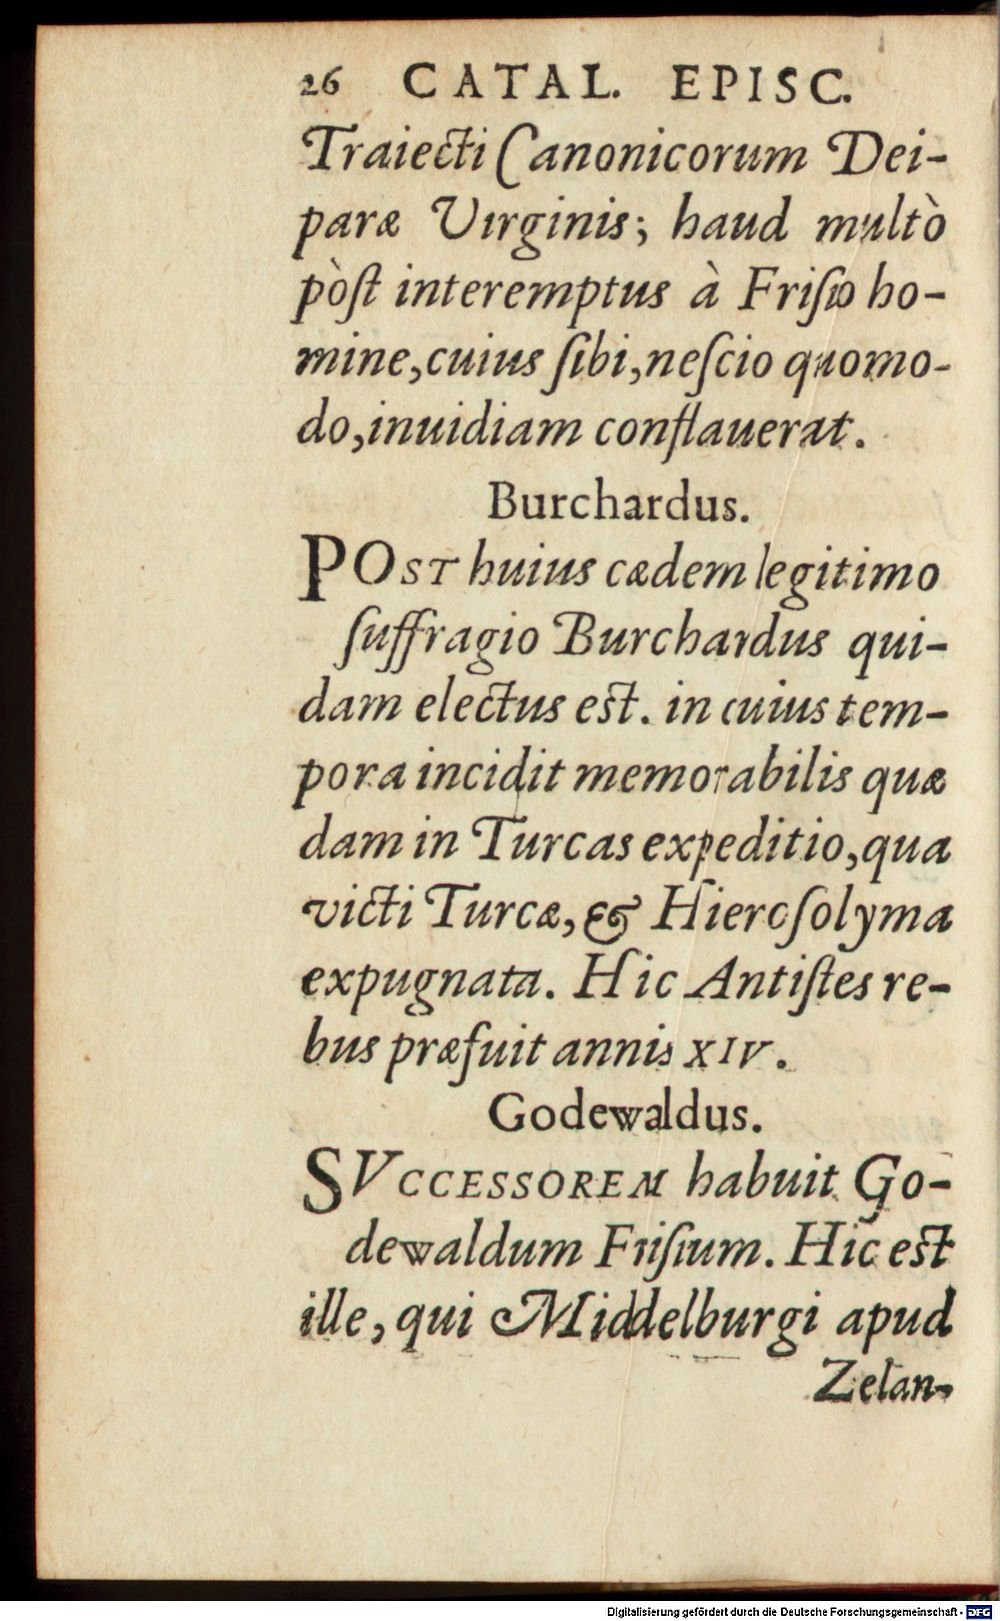 26 CATAL. EPISC.
Traiecti Canonicorum Dei-
paræ Virginis; haud multò
pòſt interemptus à Friſio ho-
mine, cuius ſibi, neſcio quomo-
do, inuidiam conflauerat.
Burchardus.
POST huius cædem legitimo
ſuffragio Burchardus qui-
dam electus est. in cuius tem-
pora incidit memorabilis quæ
dam in Turcas expeditio, qua
victi Turcæ, & Hieroſolyma
expugnata. Hic Antiſtes re-
bus præfuit annis XIV.
Godewaldus.
SVCCESSOREM habuit Go-
dewaldum Friſium. Hic est
ille, qui Middelburgi apud
Zelan-
Digitalisierung gefördert durch die Deutsche Forschungsgemeinschaft - DFG